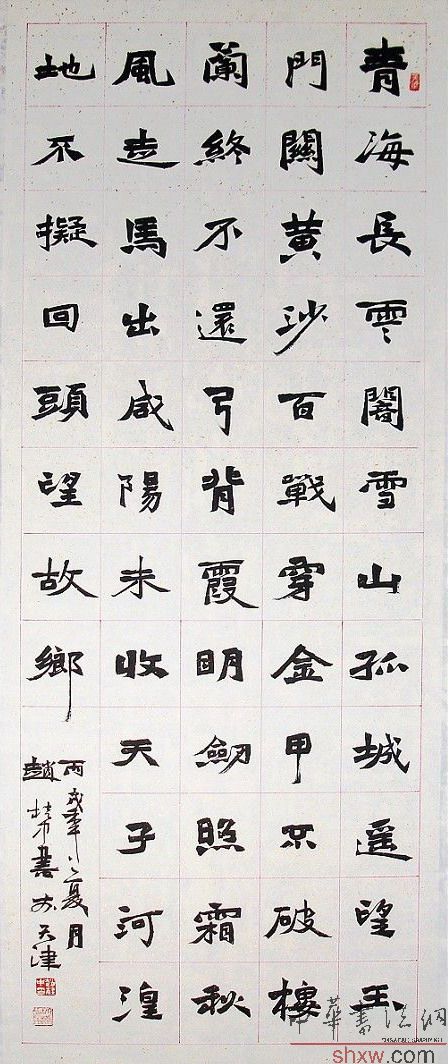 青海長雲闇雪山孤城遥望玉
門關黄沙百戰穿金甲不破樓
蘭終不還弓背霞明劒照霜秋
風走馬出咸陽未收天子河湟
地不擬回頭望故鄉
丙戌年之夏月
趙書於天津
中華書法網
shxw.com